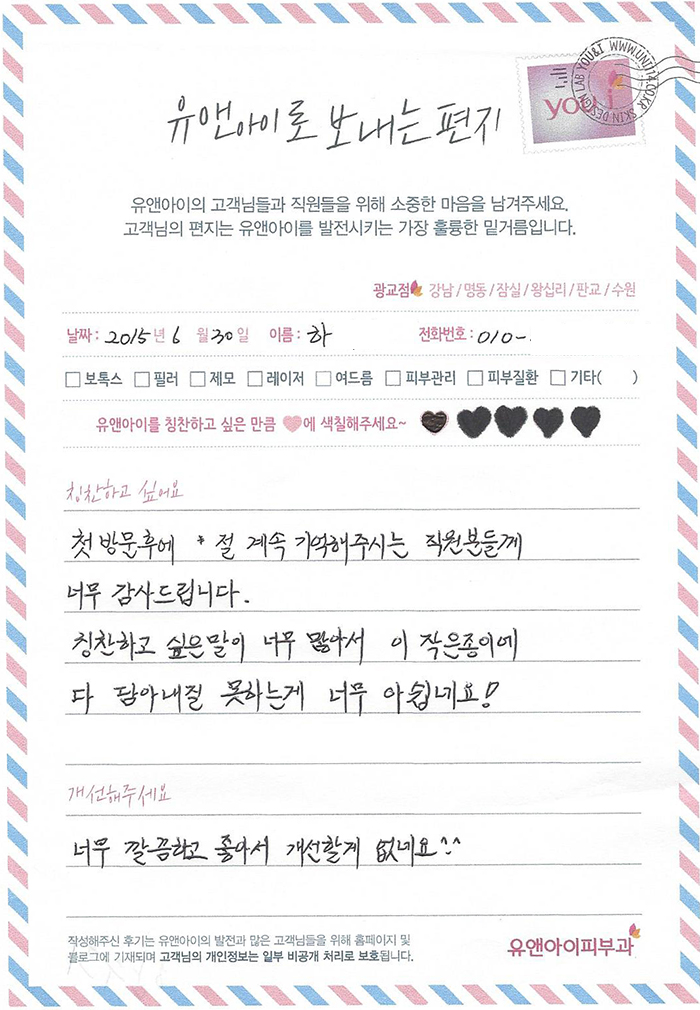 SKIN DESIGN LAB YOU&I WWW.UNI114.CO.KR
you i
유앤아이로 보내는 편지
유앤아이의 고객님들과 직원들을 위해 소중한 마음을 남겨주세요.
고객님의 편지는 유앤아이를 발전시키는 가장 훌륭한 밑거름입니다.
광교점 강남 / 명동 / 잠실 / 왕십리 / 판교 / 수원
날짜 : 2015 년 6 월 30 일 이름 : 하 전화번호 : 010-
보톡스 필러 제모 레이저 여드름 피부관리 피부질환 기타( )
유앤아이를 칭찬하고 싶은 만큼 에 색칠해주세요~
칭찬하고 싶어요
첫 방문후에 * 절 계속 기억해주시는 직원분들께
너무 감사드립니다.
칭찬하고 싶은말이 너무 많아서 이 작은종이에
다 담아내질 못하는게 너무 아쉽네요!
개선해주세요
너무 깔끔하고 좋아서 개선할게 없네요^^
작성해주신 후기는 유앤아이의 발전과 많은 고객님들을 위해 홈페이지 및
블로그에 기재되며 고객님의 개인정보는 일부 비공개 처리로 보호됩니다.
유앤아이피부과